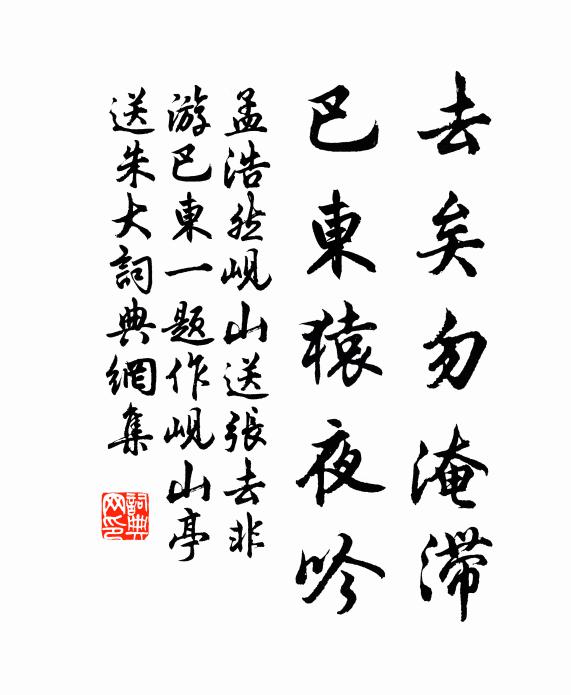 去矣勿淹滞
巴東猿夜吟
孟浩然峴山送張去非
游巴東一題作峴山亭
送朱大詞典網集
詞典
网印